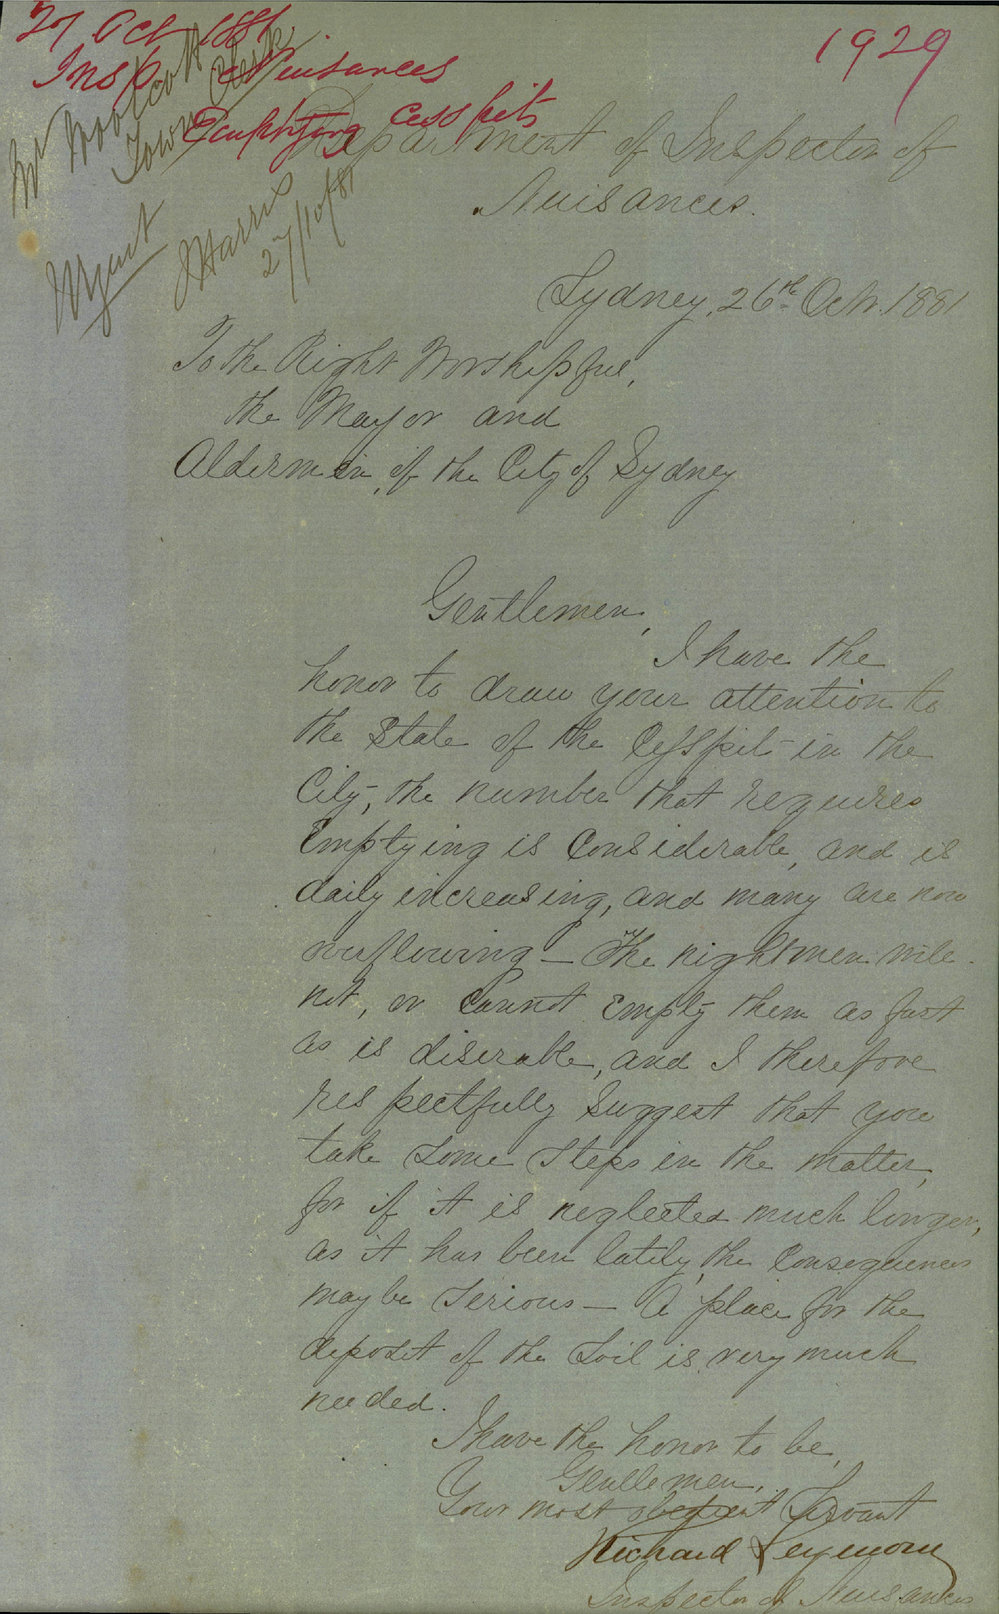 27 Oct 1881.
Insp. Nuisances
Emptying Cesspits
1929
Mr Woolcott
Town Clerk
Urgent
JHarris
27/10/81
Department of Inspector of
Nuisances.
Sydney, 26th Octr. 1881
To the Right Worshipful,
the Mayor and
Aldermen, of the City of Sydney
Gentlemen,
I have the
honor to draw your attention to
the State of the Cesspits in the
City, the number that requires
Emptying is Considerable, and is
daily increasing, and many are now
overflowing – The nightmen will
not, or Cannot Empty them as fast
as is diserable, and I therefore
respectfully Suggest that you
take Some Steps in the matter,
for if it is neglected much longer,
as it has been lately, the Consequences
may be Serious – A place for the
deposit of the Soil is very much
needed.
I have the honor to be,
Gentlemen,
Your most obedient Servant
Richard Seymour
Inspector of Nuisances